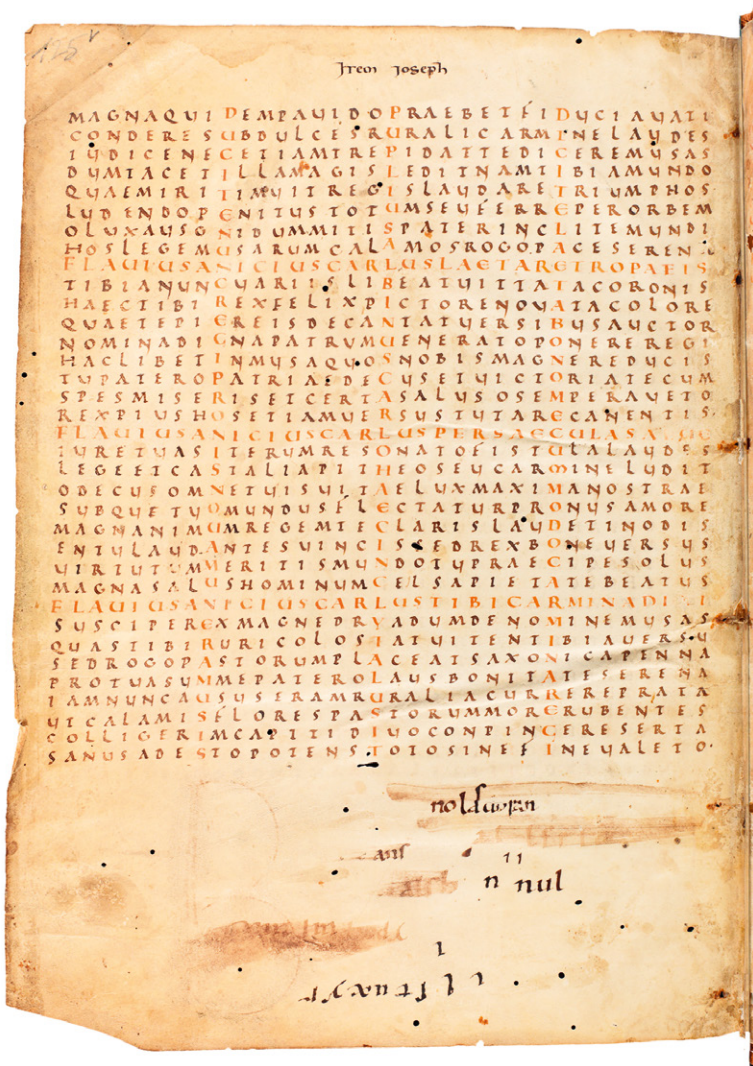 Item Joseph
MAGNAQUIDEMPAUIDOPRAEBETFIDUCIAUATI
CONDERESUBDULCESRURALICARMINELAUDES
IUDICENECETIAMTREPIDATTEDICEREMUSAS
DUMTACETILLAMAGISLEDITNAMTIBIAMUNDO
QUAEMIRITIMUITREGISLAUDARETRIUMPHOS
LUDENDOPENITUSTOTUMSEUFERREPERORBEM
OLUXAUSGNIDUMMITISPATERINCLITEMUNDI
HOSLEGEMUSARUMCALAMOSROGOPACESERENA
FLAUIUSANICIUSCARLUSLAETARETROPAEIS
TIBIANUNCUARIISLIBEATUITTATACORONIS
HAECTIBIREXFELIXPICTORENOUATACOLORE
QUAETEPIEREISDECANTATUERSIBUSAUCTOR
NOMINADIGNAPATRUMUENERATOPONEREREGI
HACLIBETINMUSAQUOSNOBISMAGNEREDUCIS
TUPATEROPATRIAEDECUSETUICTORIATECUM
SPESMISERISETCERTASALUSOSEMPERAUETO
REXPIUSHOSETIAMUERSUSTUTARECANENTIS
FLAUIUSANICIUSCARLUSPERSAECULASA
IURETUASITERUMRESONATOFISTULALAUDES
LEGEETCASTALIAPITHEOSEUCARMINELUDIT
ODECUSOMNETUISUITAELUXMAXIMANOSTRAE
SUBQUETUOMUNDUSFLECTATURPRONUSAMORE
MAGNANIMUMREGEMTECLARISLAUDETINODIS
ENTULAUDANTESUINCISSEDREXBONEUERSUS
UIRTUTUMMERITISMUNDOTUPRAECIPESOLUS
MAGNASALUSHOMINUMCELSAPIETATEBEATUS
FLAUIUSANICIUSCARLUSTIBICARMINADI
SUSCIPEREXMAGNEDRUADUMDENOMINEMUSAS
QUASTIBIRURICOLOSIATUITENTIBIAUERSU
SEDROGOPASTORUMPLACEATSAXONICAPENNA
PROTUASUMMEPATEROLAUSBONITATESERENA
IAMNUNCAUSUSERAMRURALIACURREREPRATA
UTCALAMISFLORESPASTORUMMORERUBENTES
COLLIGERIMCAPITIDIUOCONPINGERESERTA
SANUSADESTOPOTENSTOTOSINEFINEUALETO
n nul